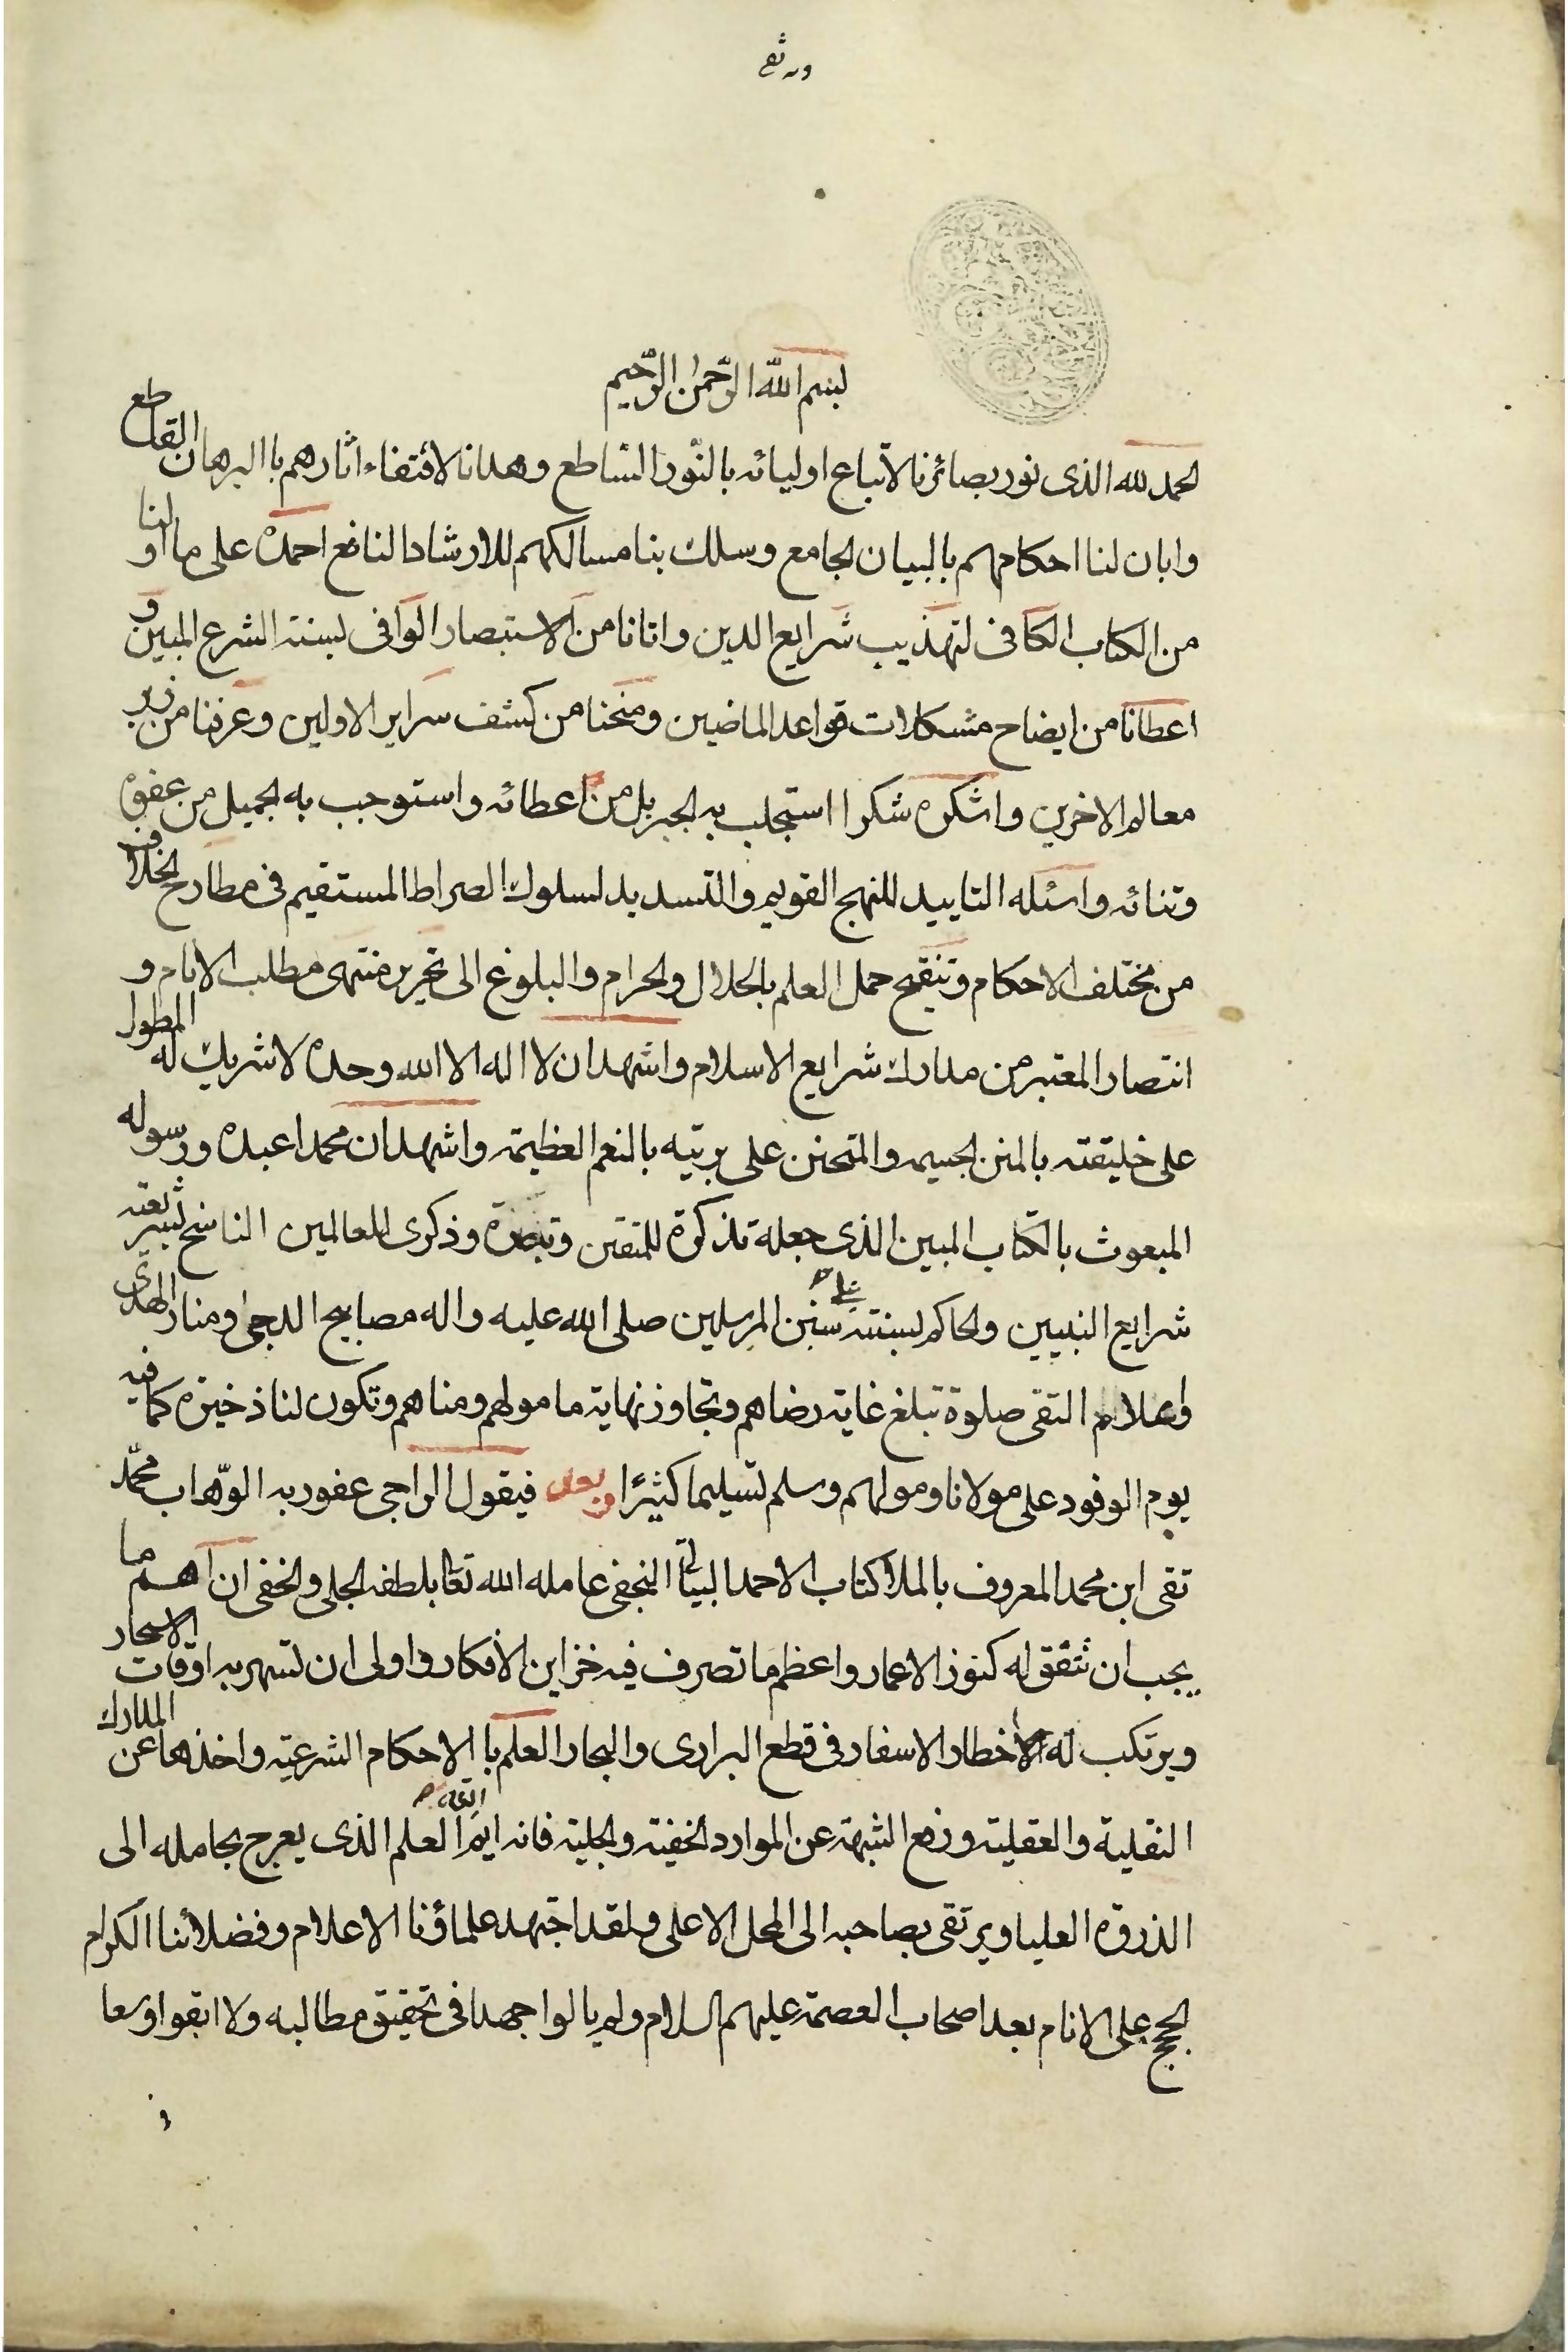 بسم الله الرّحمن الرّحيم
الحمد لله الذى نور بصائرنا لاتباع اوليائه بالنّور الساطع وهدانا لاقتفاء اثارهم باالبرهان القاطع
وابان لنا احكامهم بالبيان الجامع وسلك بنا مسالكهم للارشاد النافع احمده على ما اولنا
من الكتاب الكافى لتهذيب شرايع الدين واتانا من الاستبصار الوافى لسنة الشرع المبين و
اعطانا من ايضاح مشكلات قواعد الماضيين ومنحنا من كشف سراير الاولين وعرفنا من زبر
معالم الاخرين واشكره شكرا استجلب به الجزيل من اعطائه واستوجب به الجميل من عفوه
وثنائه واسئله التاييد للنهج القويم والتسديد لسلوك الصراط المستقيم فى مطارح الخلاف
من مختلف الاحكام وتنقيح حمل العلم بالحلال والحرام والبلوغ الى تحرير منتهى مطلب الانام و
انتصار المعتبر من مدارك شرايع الاسلام واشهد ان لا اله الا الله وحده لا شريك له المطول
على خليقته بالمنن الجسيمه والمتحنن على بريّته بالنعم العظيمة واشهد ان محمدا عبده ورسوله
المبعوث بالكتاب المبين الذى جعله تذكرة للمتقين وتبصرة وذكرى للعالمين الناسخ بشريعته
شرايع النبيين والحاكم بسنته على سنن المرسلين صلى الله عليه واله مصابيح الدجى ومنار الهدى
واعلام التقى صلوة تبلغ غاية رضاهم وتجاوز نهاية مامولهم ومناهم وتكون لنا ذخيرة كافيه
يوم الوفود على مولانا ومولهم وسلم تسليما كثيرًا وبعد فيقول الراجى عفو ربه الوّهاب محمّد
تقى ابن محمد المعروف بالملا كتاب الاحمد البياتى النجفى عامله الله تعا بلطفه الجلى والخفى ان اهم ما
يجب ان تنفق له كنوز الاعمار واعظم ما تصرف فيه خزاين الأفكار واولى ان تسهر به اوقات الاسحار
ويرتكب له اخطار الاسفار فى قطع البرارى والبحار العلم با الاحكام الشرعيّه واخذها عن المدارك
النقلية والعقلية ورفع الشبهة عن الموارد الخفية والجلية فانه ايم الله العلم الذى يعرج بحامله الى
الذروة العليا ويرتقى بصاحبه الى المحل الاعلى ولقد اجتهد علماؤنا الاعلام وفضلائنا الكرام
الحجج على الانام بعد اصحاب العصمة عليهم السلام ولم يالوا جهدا فى تحقيق مطالبه ولا ابقوا وسعا